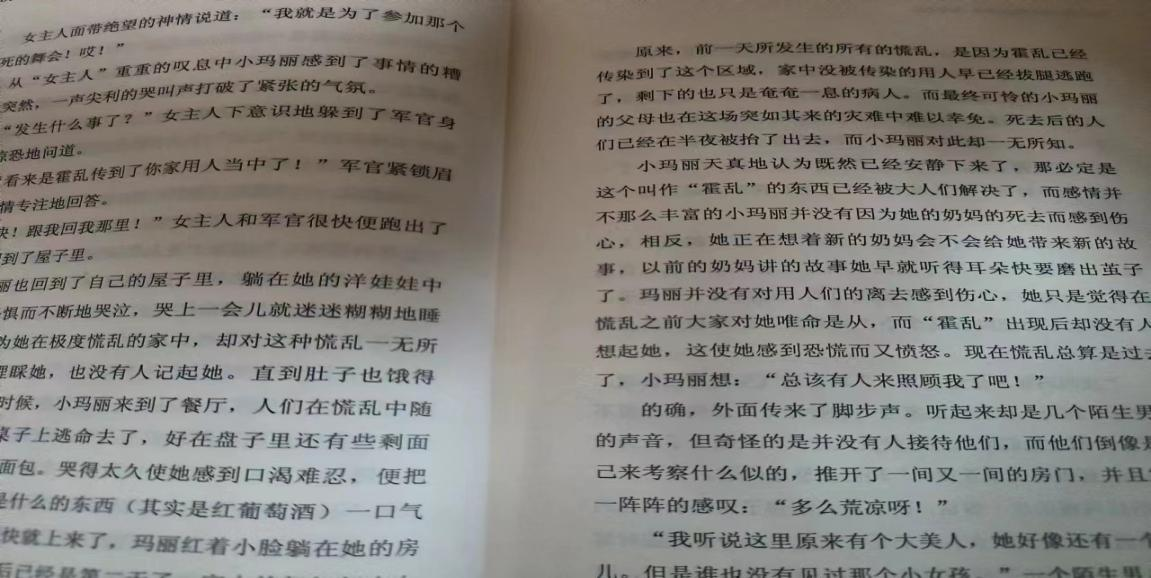 女主人面带绝望的神情说道：“我就是为了参加那个
死的舞会！哎！”
从“女主人”重重的叹息中小玛丽感到了事情的糟
突然，一声尖利的哭叫声打破了紧张的气氛。
“发生什么事了？”女主人下意识地躲到了军官身
惊恐地问道。
看来是霍乱传到了你家用人当中了！”军官紧锁眉
情专注地回答。
快！跟我回我那里！”女主人和军官很快便跑出了
到了屋子里。
丽也回到了自己的屋子里，躺在她的洋娃娃中
惧而不断地哭泣，哭上一会儿就迷迷糊糊地睡
为她在极度慌乱的家中，却对这种慌乱一无所
理睬她，也没有人记起她。直到肚子也饿得
时候，小玛丽来到了餐厅，人们在慌乱中随
桌子上逃命去了，好在盘子里还有些剩面
面包。哭得太久使她感到口渴难忍，便把
是什么的东西（其实是红葡萄酒）一口气
快就上来了，玛丽红着小脸躺在她的房
后已经是第二天了
原来，前一天所发生的所有的慌乱，是因为霍乱已经
传染到了这个区域，家中没被传染的用人早已经拔腿逃跑
了，剩下的也只是奄奄一息的病人。而最终可怜的小玛丽
的父母也在这场突如其来的灾难中难以幸免。死去后的人
们已经在半夜被抬了出去，而小玛丽对此却一无所知。
小玛丽天真地认为既然已经安静下来了，那必定是
这个叫作“霍乱”的东西已经被大人们解决了，而感情并
不那么丰富的小玛丽并没有因为她的奶妈的死去而感到伤
心，相反，她正在想着新的奶妈会不会给她带来新的故
事，以前的奶妈讲的故事她早就听得耳朵快要磨出茧子
了。玛丽并没有对用人们的离去感到伤心，她只是觉得在
慌乱之前大家对她唯命是从，而“霍乱”出现后却没有人
想起她，这使她感到恐慌而又愤怒。现在慌乱总算是过去
了，小玛丽想：“总该有人来照顾我了吧！”
的确，外面传来了脚步声。听起来却是几个陌生男
的声音，但奇怪的是并没有人接待他们，而他们倒像是
己来考察什么似的，推开了一间又一间的房门，并且
一阵阵的感叹：“多么荒凉呀！”
“我听说这里原来有个大美人，她好像还有一个
儿。但是谁也没有见过那个小女孩。”一个陌生男